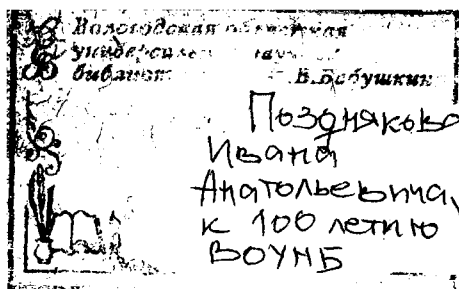 Вологодская областная
универсальная
библиот
В.Бабушкин
Позднякова
Ивана
Анатольевича,
к 100 летию
ВОУНБ